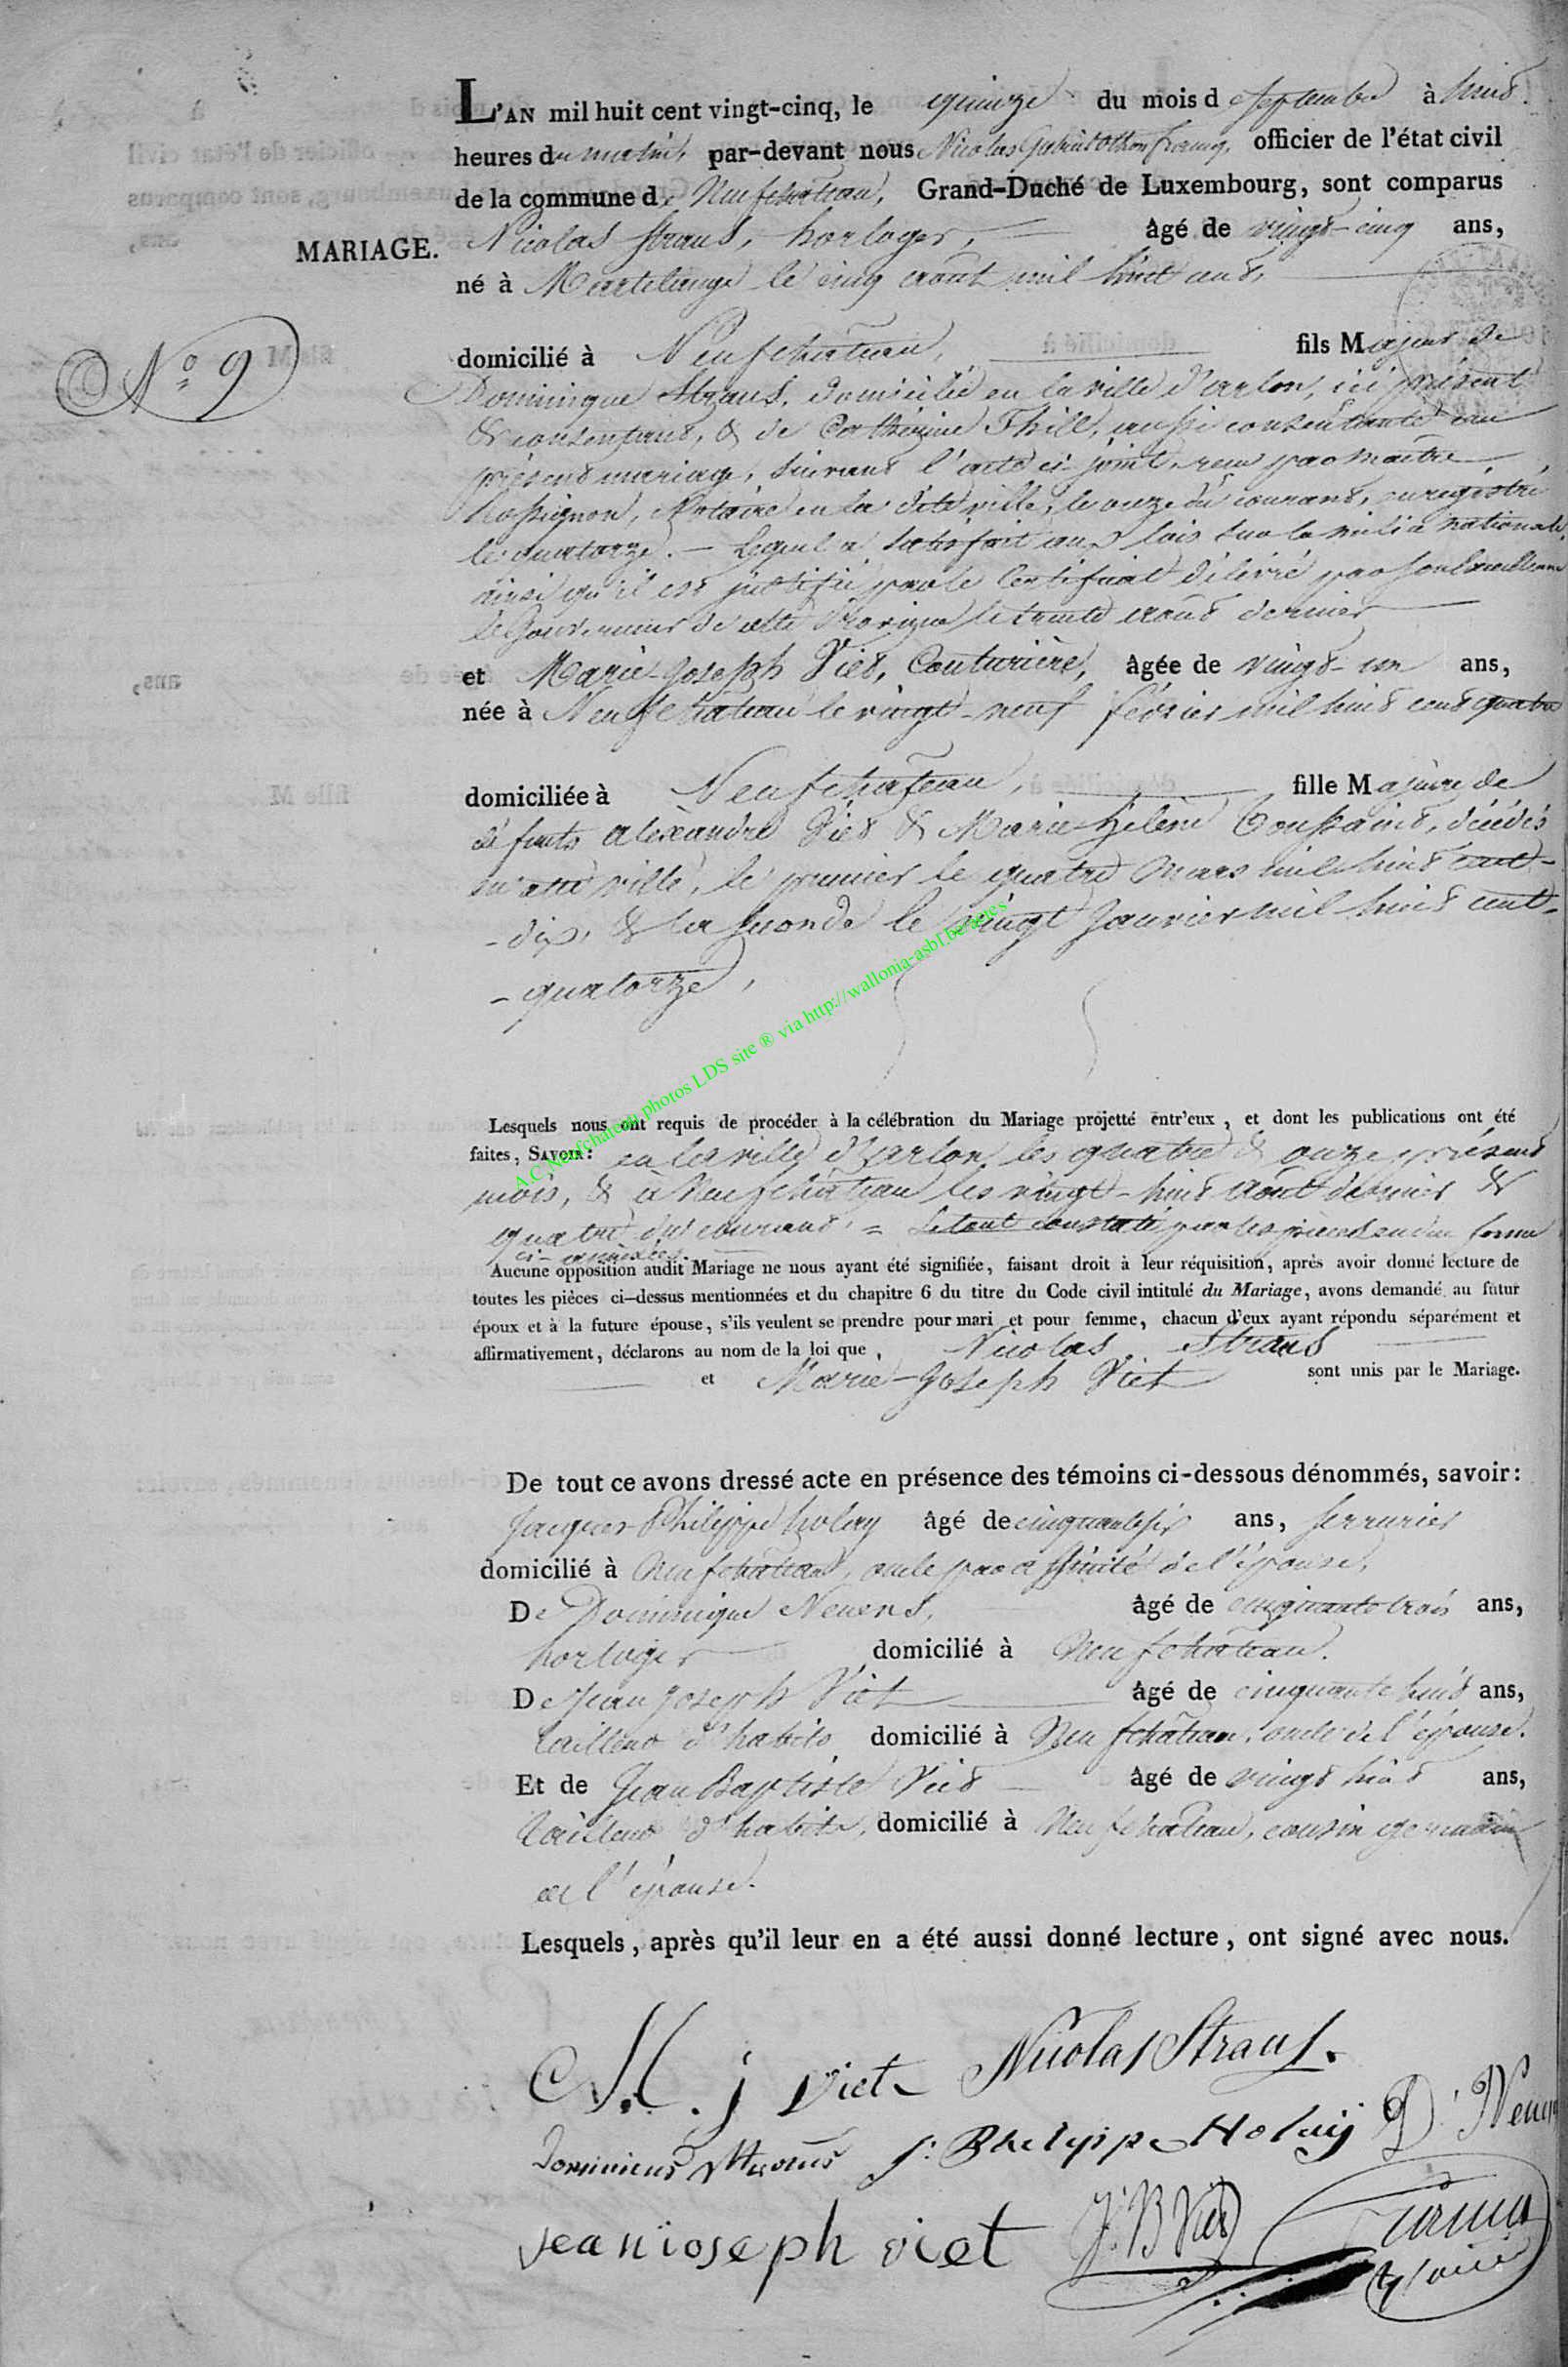 L'AN mil huit cent vingt-cinq, le quinze du mois de septembre à huit
heures du matin, par-devant nous Nicolas Gabriel Othon officier de l'état civil
de la commune de Neufchâteau, Grand-Duché de Luxembourg, sont comparus
MARIAGE. Nicolas Straus, horloger, âgé de vingt-cinq ans,
né à Martelange le cinq août mil huit cent,
N.º 9
domicilié à Neufchâteau, fils Majeur de
Dominique Straus, domicilié en la ville d'arlon, ici présent
& consentant, & de Catherine Thill, aussi consentante au
présent mariage, suivant l'acte ci-joint, reçu par maître
Rossignon, Notaire en la dite ville, le onze du courant, enregistré
le quatorze. — Lequel a satisfait aux lois sur la milice nationale,
ainsi qu'il est justifié par le Certificat délivré par son Excellence
le Gouverneur de cette Province le trente août dernier
et Marie-Joseph Viet, Couturière, âgée de vingt-un ans,
née à Neufchâteau le vingt-neuf février mil huit cent quatre
domiciliée à Neufchâteau, fille Majeure de
défunts Alexandre Viet & Marie-hélène Toussaint, décédés
en cette ville, le premier le quatre Mars mil huit cent-
-dix, & la seconde le vingt Janvier mil huit cent-
-quatorze,
A.C.Neufchateau photos LDS site ® via http://wallonia-asbl.be/actes
Lesquels nous ont requis de procéder à la célébration du Mariage projetté entr'eux, et dont les publications ont été
faites, SAVOIR: en la ville d'Arlon, les quatre & onze présent
mois, & à Neufchâteau les vingt-huit Août dernier &
quatre du courant. = Le tout constaté par les pièces en due forme
ci-annexées.
Aucune opposition audit Mariage ne nous ayant été signifiée, faisant droit à leur réquisition, après avoir donné lecture de
toutes les pièces ci-dessus mentionnées et du chapitre 6 du titre du Code civil intitulé du Mariage, avons demandé au futur
époux et à la future épouse, s'ils veulent se prendre pour mari et pour femme, chacun d'eux ayant répondu séparément et
affirmativement, déclarons au nom de la loi que, Nicolas Straus
et Marie-Joseph Viet sont unis par le Mariage.
De tout ce avons dressé acte en présence des témoins ci-dessous dénommés, savoir:
Jacques Philippe holay âgé de cinquante six ans, serrurier
domicilié à Neufchâteau, oncle par affinité de l'épouse,
De Dominique Nevens, âgé de cinquante trois ans,
horloger domicilié à Neufchâteau.
De Jean Joseph Viet âgé de cinquante huit ans,
tailleur d'habits domicilié à Neufchâteau, oncle de l'épouse.
Et de Jean Baptiste Viet âgé de vingt huit ans,
tailleur d'habits, domicilié à Neufchâteau, cousin germain
de l'épouse.
Lesquels, après qu'il leur en a été aussi donné lecture, ont signé avec nous.
M. j Viet Nicolas Straus.
Dominicus Straus j: Phelippe Holaÿ D. Neven
jean ioseph viet J: B Viet